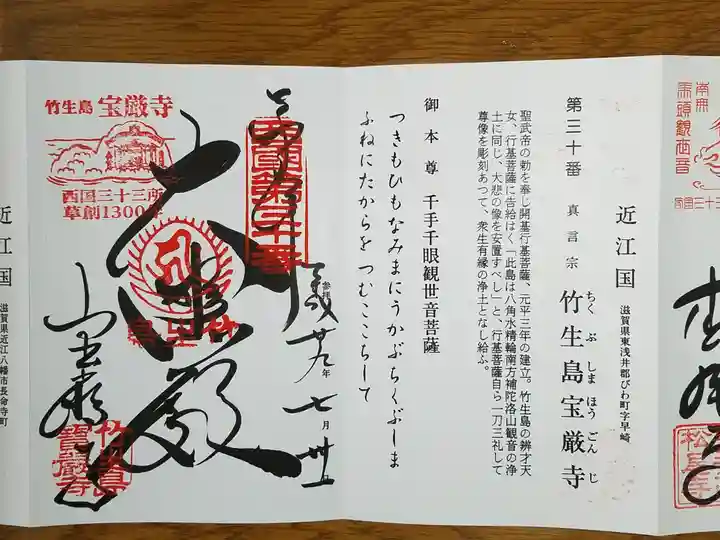 南無
馬頭観世音
近江国
滋賀県東浅井郡びわ町字早崎
第三十番
真言宗
竹生島宝厳寺
ちくぶしまほうごんじ
聖武帝の勅を奉じ開基行基菩薩、元平三年の建立。竹生島の辨才天
女、行基菩薩に告給はく「此島は八角水精輪南方補陀洛山観音の浄
土に同じ、大悲の像を安置すべし」と、行基菩薩自ら一刀三礼して
尊像を彫刻あつて、衆生有縁の浄土となし給ふ。
御本尊 千手千眼観世音菩薩
つきもひもなみまにうかぶちくぶしま
ふねにたからを つむここちして
奉拝
西国第三十番
参拝
年
七月卅一
大悲殿
竹生島
竹生島 宝厳寺
西国三十三所
草創1300年
宝厳寺
竹生島
寳厳寺
近江国
滋賀県近江八幡市長命寺町
松尾寺